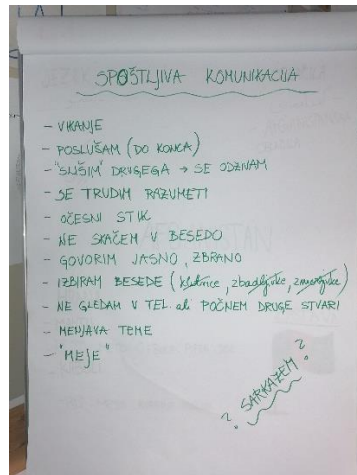 SPOŠTLJIVA KOMUNIKACIJA
- VIKANJE
- POSLUŠAM (DO KONCA)
- "SLIŠIM" DRUGEGA → SE ODZNAM
- SE TRUDIM RAZUMETI
- OČESNI STIK
- NE SKAČEM V BESEDO
- GOVORIM JASNO, ZBRANO
- IZBIRAM BESEDE (kletvice, zbadljivke, zmerjivke)
- NE GLEDAM V TEL. ali POČNEM DRUGE STVARI
- MENJAVA TEME
- "MEJE"
? SARKAZEM ?